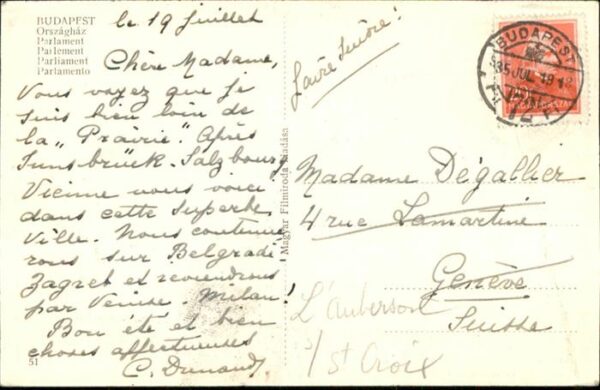 BUDAPEST
Országház
Parlament
Parlement
Parliament
Parlamento
le 19 juillet
Chère Madame,
Vous voyez que je
suis bien loin de
la "Prairie". Après
Innsbrück. Salzbourg
Vienne nous voici
dans cette superbe
ville. Nous continue
rons sur Belgrade
Zagreb et reviendrons
par Venise. Milan!
Bon été et bien
choses affectueuses
C. Dunand
51
Magyar Filmiroda kiadása
BUDAPEST
35 JUL 19
Madame Dégallier
4 rue Lamartine
Genève
Suisse
L'Auberson
s/ St Croix